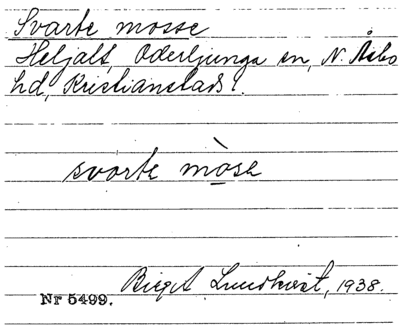 Svarte mosse
Heljalt, Oderljunga sn, N. Åsbo
hd, Kristianstads l.
svarte mòse
Birgit Lundkvist, 1938.
Nr 5499.